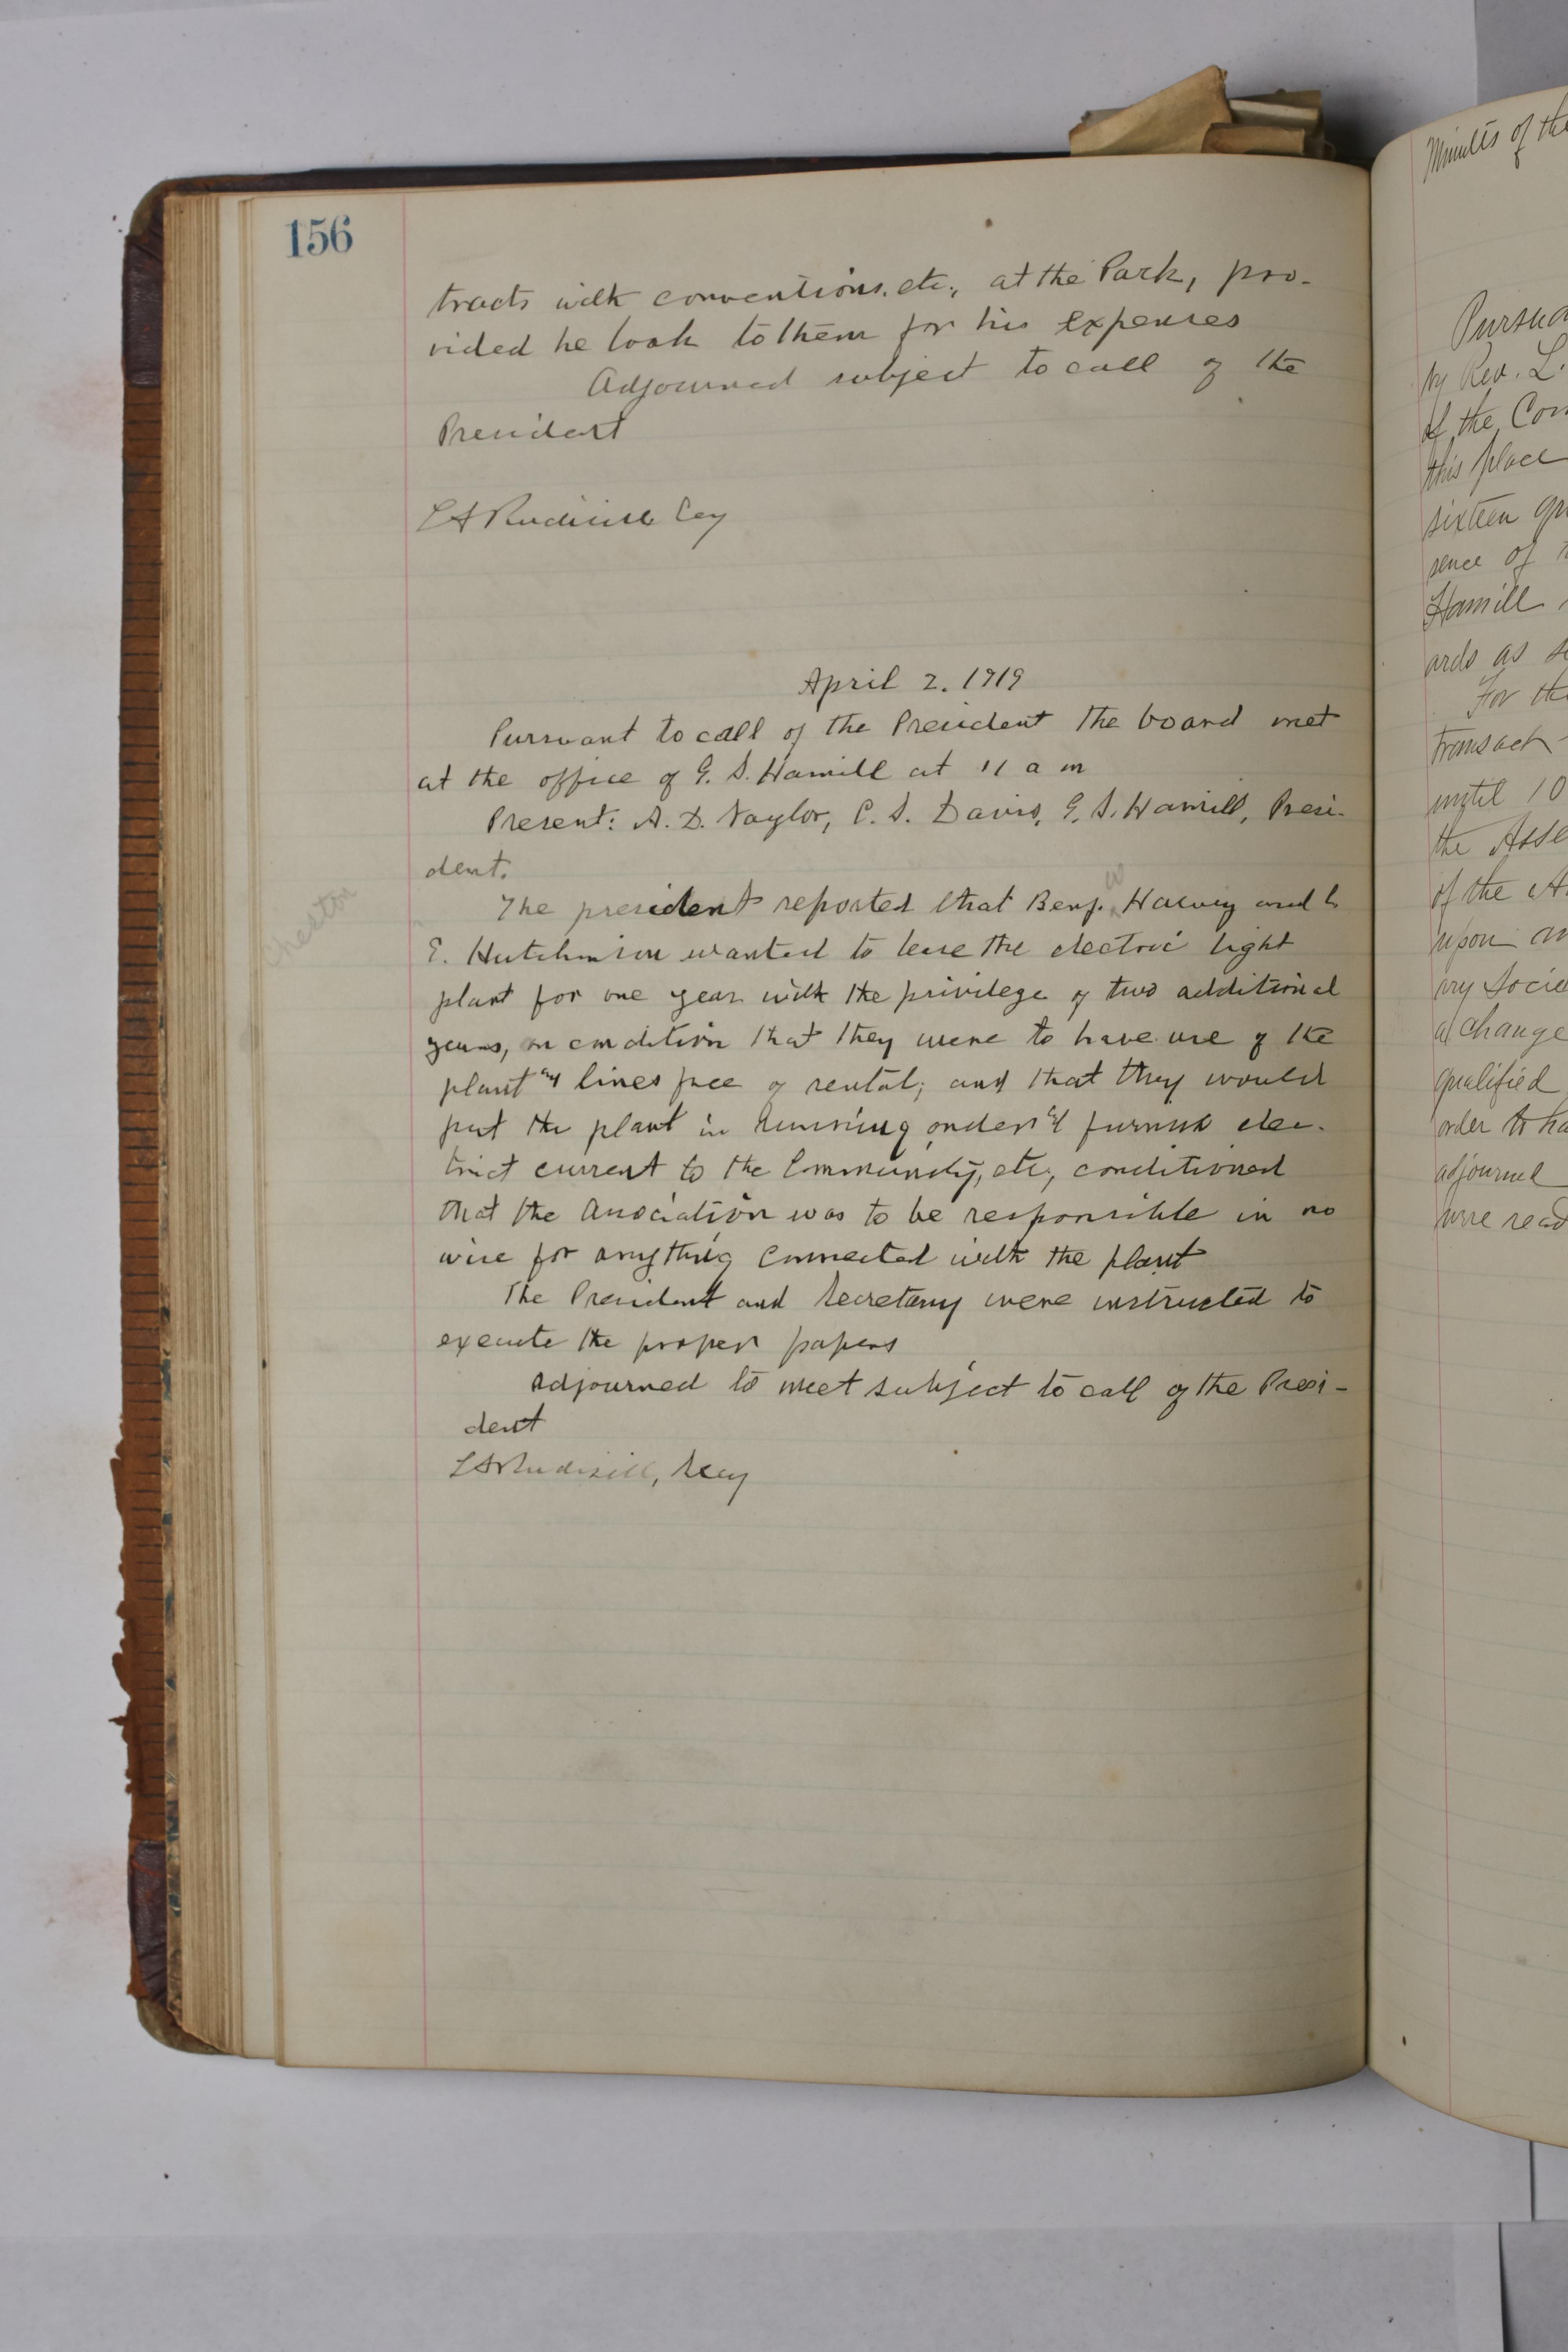 156
tracts with conventions, etc., at the Park, pro-
vided he look to them for his expenses
Adjourned subject to call of the
President
L A Rudisill Secy
April 2. 1919
Pursuant to call of the President the board met
at the office of G. S. Hamill at 11 a m
Present: A. D. Naylor, C. S. Davis, G. S. Hamill, Presi-
dent.
The president reported that Benj. W Harvey and
E. Hutchinson wanted to lease the electric light
plant for one year with the privilege of two additional
years, on condition that they were to have use of the
plant and lines free of rental; and that they would
put the plant in running order & furnish elec-
trict current to the Community, etc., conditioned
that the Association was to be responsible in no
wise for anything connected with the plant
The President and Secretary were instructed to
execute the proper papers
Adjourned to meet subject to call of the Presi-
dent
L A Rudisill, Secy
Minutes of the
by Rev. L.
of the
this place
sixteen
sence of
Hamill
ards as
For the
transact
until 10
the
of the
upon
ary
a change
qualified
order to
adjourned
were read